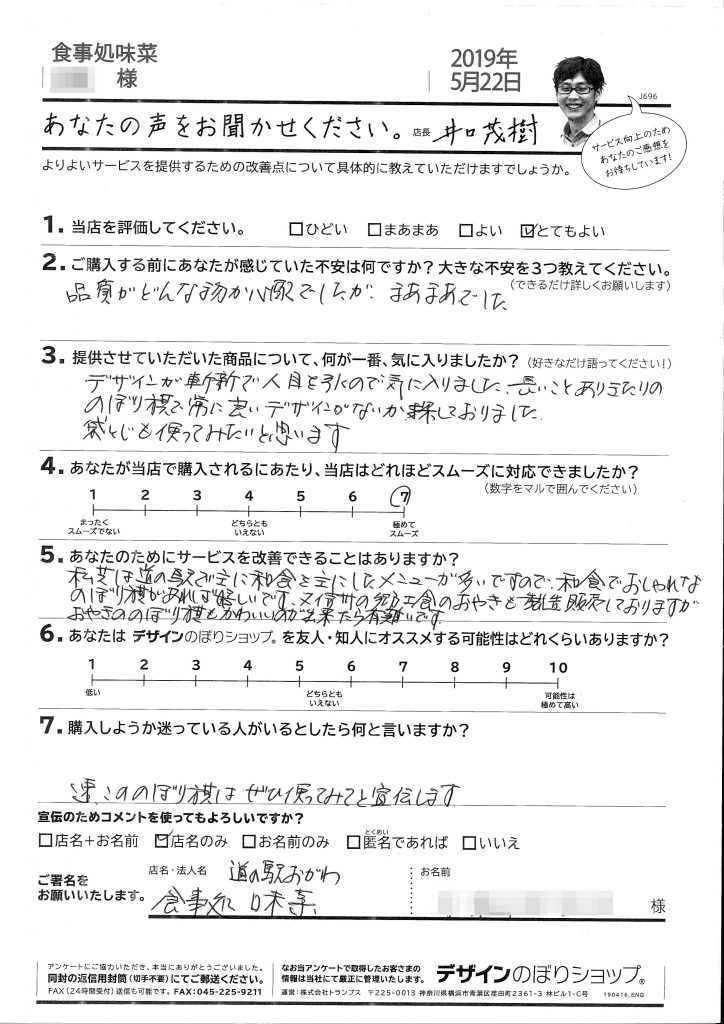 食事処味菜
様
2019年
5月22日
J696
あなたの声をお聞かせください。 店長 井口茂樹
サービス向上のため
あなたのご感想を
お待ちしています!
よりよいサービスを提供するための改善点について具体的に教えていただけますでしょうか。
1. 当店を評価してください。 □ひどい □まあまあ □よい ☑とてもよい
2. ご購入する前にあなたが感じていた不安は何ですか? 大きな不安を3つ教えてください。
(できるだけ詳しくお願いします)
品質がどんな物か心配でしたが、まあまあでした
3. 提供させていただいた商品について、何が一番、気に入りましたか? (好きなだけ語ってください!)
デザインが斬新で人目を引くので気に入りました、長いことありきたりの
のぼり旗で常に良いデザインがないか探しておりました
袋とじも使ってみたいと思います
4. あなたが当店で購入されるにあたり、当店はどれほどスムーズに対応できましたか?
(数字をマルで囲んでください)
1 2 3 4 5 6 7
まったく
スムーズでない
どちらとも
いえない
極めて
スムーズ
5. あなたのためにサービスを改善できることはありますか?
私共は道の駅で主に和食を主にしたメニューが多いですので、和食でおしゃれな
のぼり旗があれば嬉しいです、又信州の郷土食のおやきも製造販売しておりますが
おやきののぼり旗もかわいいのが出来たら有難いです
6. あなたは デザインのぼりショップ® を友人・知人にオススメする可能性はどれくらいありますか?
1 2 3 4 5 6 7 8 9 10
低い
どちらとも
いえない
可能性は
極めて高い
7. 購入しようか迷っている人がいるとしたら何と言いますか?
こののぼり旗はぜひ使ってみてと宣伝します
宣伝のためコメントを使ってもよろしいですか?
□店名+お名前 ☑店名のみ □お名前のみ □匿名であれば □いいえ
とくめい
ご署名を
お願いいたします。
店名・法人名 道の駅おがわ
食事処 味菜
お名前
様
アンケートにご協力いただき、本当にありがとうございました。
同封の返信用封筒(切手不要)にてご郵送ください。
FAX(24時間受付)送信も可能です。FAX:045-225-9211
なお当アンケートで取得したお客さまの
情報は当社にて厳正に管理いたします。
デザインのぼりショップ®
運営:株式会社トランプス 〒225-0013 神奈川県横浜市青葉区荏田町2361-3 林ビル1-C号
190416_ENQ